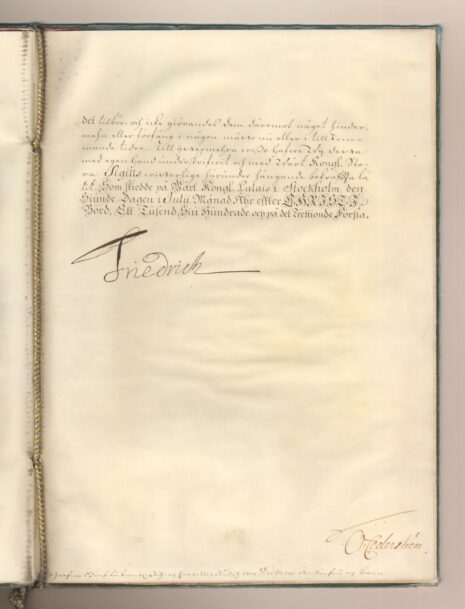 det tilbör, och icke giörandes dem däremot något hinder,
mehn eller förfång i någon måtto nu eller i till kom-
mande tider. Till yttermehra wißo hafwe Wij detta
med egen hand underskrifwit och med Wårt Kongl. Sto-
ra Sigills witterliga härunder hängande bekräffta lå-
tit. Som skedde på Wårt Kongl. Palais i Stockholm den
Dagen i Julii Månad, Ahr effter CHRISTI
Börd, Ett Tusend Siu Hundrade och på det Trettionde Första.
Friedrich
Cederström